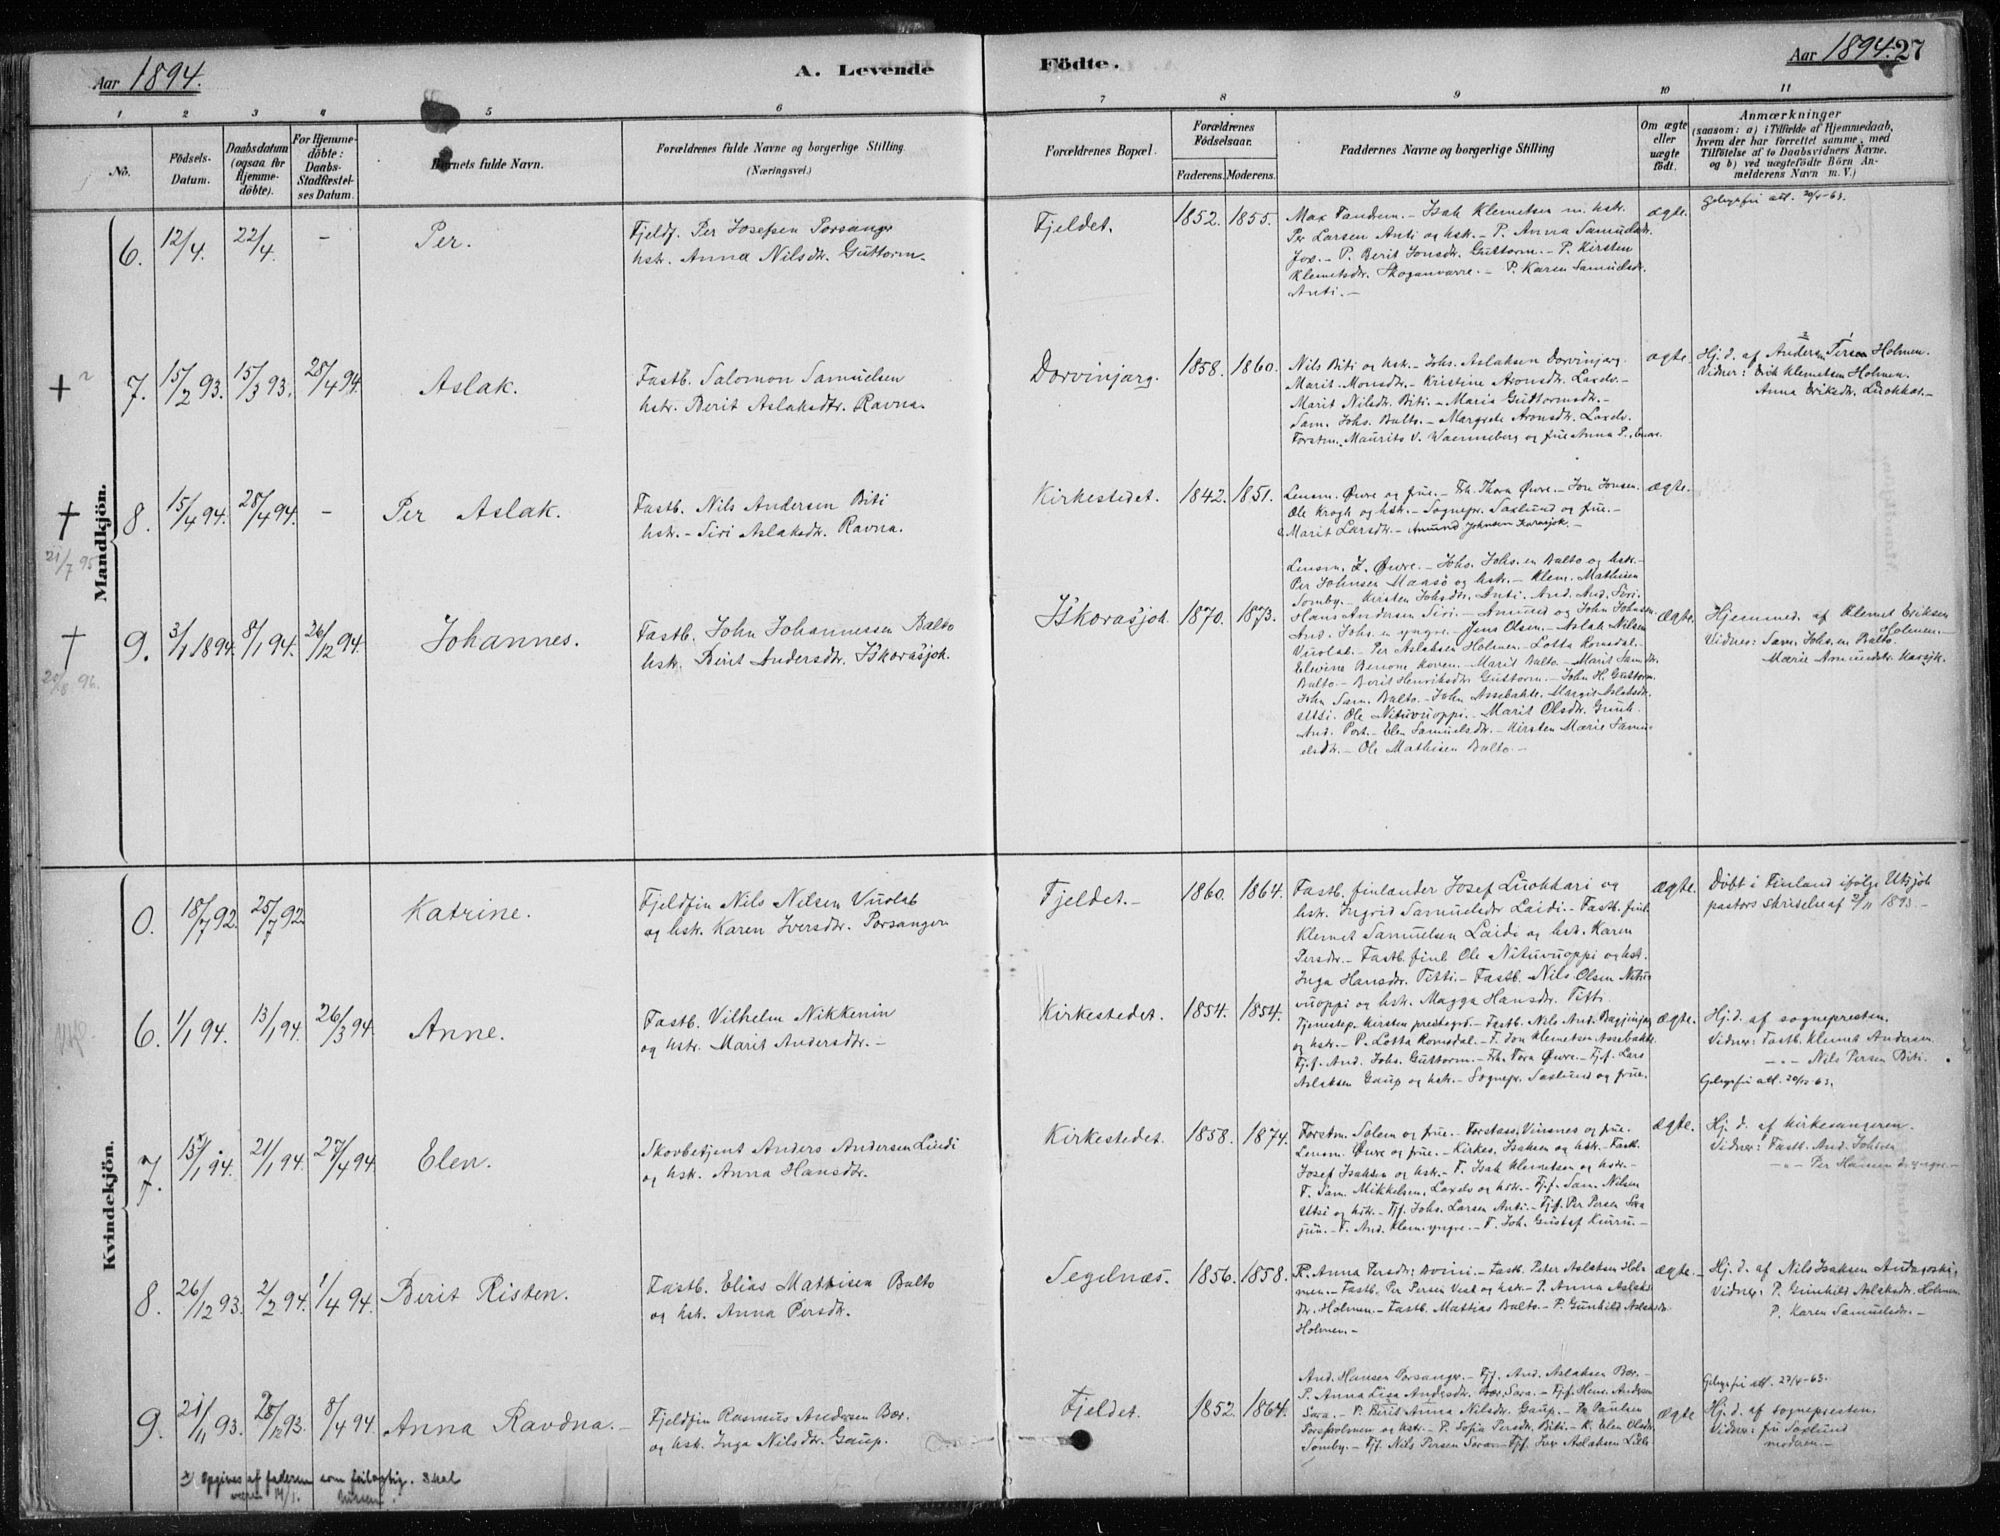 Aar 1894.
A. Levende
Födte.
Aar 1894. 27
1 2 3 4 5 6 7 8 9 10 11
No.
Födsels-
Datum.
Daabsdatum
(ogsaa for
Hjemme-
döbte).
For Hjemme-
döbte:
Daabs-
Stadfæstel-
ses Datum.
Barnets fulde Navn.
Forældrenes fulde Navne og borgerlige Stilling
(Næringsvei.)
Forældrenes Bopæl.
Forældrenes
Födselsaar.
Faderens. Moderens.
Faddernes Navne og borgerlige Stilling
Om ægte
eller
uægte
födt.
Anmærkninger
(saasom: a) i Tilfælde af Hjemmedaab,
hvem der har forrettet samme, med
Tilföielse af to Daabsvidners Navne,
og b) ved uægtefödte Börn An-
melderens Navn m. V.)
Mandkjön.
6. 12/4. 22/4. - Per.
Fjeldf. Per Josefsen Porsanger
hstr. Anna Nilsdr. Guttorm.
Fjeldet. 1852. 1855.
Max Tandem. - Isak Klemetsen m. hstr.
Per Larsen Anti og hstr. - P. Anna Samuelsdr.
Jox. - P. Berit Jonsdr. Guttorm. - P. Kirsten
Klemetsdr. Skoganvarre. - P. Karen Samuelsdr.
Anti. -
ægte.
7. 15/2 93. 15/3 93. 28/4 94. Aslak.
Fastb. Salomon Samuelsen
hstr. Berit Aslaksdtr. Ravna.
Dorvinjarg. 1858. 1860.
Nils Biti og hstr. - Johs. Aslaksen Dorvinjarg.
Marit Monsdr. - Kristine Aronsdr. Laxelv. -
Marit Nilsdr. Biti. - Maria Guttormsdr. -
Sam. Johs. Balto. - Margrete Aronsdr. Laxelv.
Forstm. Maurits v. Waenneberg og frue Anna P., Enare.
ægte.
Hj. d. af Andersen Holmen.
Vidner: Erik Klemetsen Holmen.
Anna Eriksdr. Luokkar. -
8. 15/4 94. 28/4 94. - Per Aslak.
21/7 95
Fastb. Nils Andersen Biti
hstr. - Siri Aslaksdr. Ravna.
Kirkestedet. 1842. 1851.
Lensm. Øwre og frue. - Frk. Thora Øwre. - Jon Jonsen.
Ole Krogh og hstr. - Sognepr. Saxlund og frue. -
Marit Larsdr. - Amund Johnsen Karasjok. -
ægte.
9. 3/1 1894. 8/1 94. 26/12 94. Johannes.
20/8 96.
Fastb. John Johannessen Balto
hstr. Berit Andersdr. Iskorasjok.
Iskorasjok. 1870. 1873.
Lensm. Z. Øwre. - Johs. Johs.en Balto og hstr. -
Per Johnsen Maasø og hstr. - Klem. Mathisen
Somby. - Kirsten Johsdr. Anti. And. And. Siri.
Hans Andersen Siri. - Amund og John Johnsen.
And. Johs.en yngre. - Jens Olsen. - Aslak Nilsen
Vuolab. - Per Aslaksen Holmen. - Lotta Romsdal. -
Elevine Benone Koven. - Marit Balto. - Marit Sam.dr.
Balto. - Berit Henriksdr. Guttorm. - John H. Guttorm.
John Sam. Balto. - John Assebakte. Margit Aslaksdr.
Utsi. Ole Nituvuoppi. - Marit Olsdr. Grønb.
And. Port. - Elen Samuelsdr. - Kirsten Marie Samu-
elsdr. - Ole Mathisen Balto. -
ægte.
Hjemmed. af Klemet Eriksen
Holmen. -
Vidner: Sam. Johs.en Balto.
Marie Amundstr. Karasjk.
Kvindekjön.
0. 18/7 92. 25/7 92. Katrine.
Fjeldfin Nils Nilsen Vuolab
og hstr. Karen Iversdtr. Porsanger
Fjeldet. - 1860. 1864.
Fastb. finlænder Josef Luokkari og
hstr. Ingrid Samuelsdr Laidi. - Fastb. finl.
Klemet Samuelsen Laidi og hstr. Karen
Persdr. - Fastb. finl Ole Nituvuoppi og hst.
Inga Hansdtr. Titti. - Fastb. Nils Olsen Nitu-
vuoppi og hstr. Magga Hansdtr. Titti.
ægte.
Døbt i Finland ifølge Utsjok
pastors skrivelse af 2/11 1893. -
6. 1/1 94. 13/1 94. 26/3 94. Anne.
Fastb. Vilhelm Nikkenin
og hstr. Marit Andersdtr. -
Kirkestedet. 1854. 1854.
Tjenestep. Kirsten prestegrd. - Fastb. Nils And. Baggjnjarg
og hstr. - P. Lotta Romsdal. - F. Jon Klemetsen Assebakte.
Fj.f. And. Johs. Guttorm. - Frk. Tora Øwre. - Fj.f. Lars
Aslaksen Gaup og hstr. - Sognepr. Saxlund og frue. -
ægte.
Hj. d. af sognepresten.
Vidner: Fastb. Klemet Andersen
-"- Nils Persen Biti.
7. 15/1 94. 21/1 94. 27/4 94. Elen.
Skovbetjent Anders Andersen Lindi
og hstr. Anna Hansdtr.
Kirkestedet. 1858. 1874.
Forstm. Salem og frue. - Forstass. Vinsnes og frue.
Lensm. Øwre og frue. - Kirkes. Isaksen og hstr. - Fastb.
Josef Isaksen og hstr. - F. Isak Klemetsen og hstr. -
F. Sam. Mikkelsen, Laxelv og hstr. - Fj.f. Sam. Nilsen
Utsi og hstr. - Fjf. Johs. Larsen Anti. - Fjf. Per Persen
F. And. Klem. yngre. - F. Joh. Gustaf Kurru. -
ægte.
Hj. d. af kirkesangeren.
Vidner: Fastb. And. Johsen
-"- Per Hansen d. yngre. -
8. 26/12 93. 2/2 94. 1/4 94. Berit Risten.
Fastb. Elias Mathisen Balto
og hstr. Anna Persdtr.
Segelnæs. 1856. 1858.
P. Anna Persdr: Avini. - Fastb. Peter Aslaksen Hol-
men. - Fastb. Per Persen Vest og hstr. - P. Anna Aslaks-
dr. Holmen. - Fastb. Mattias Balto. - P. Gunhild Aslaksdr.
Holmen. -
ægte. -
Hj. d. af Nils Isaksen
Vidner: P. Gunhild Aslaksdr. Holmen.
P. Karen Samuelsdr. -
9. 21/11 93. 28/12 93. 8/4 94. Anna Ravdna. -
Fjeldfin Rasmus Andersen Bær.
og hstr. Inga Nilsdtr. Gaup.
Fjeldet. 1852. 1864.
And. Hansen Porsanger. - Fjf. And. Aslaksen Bær. -
P. Anna Lisa Andersdr. Bær, Sara. - Fjf. Henr. Andersen
Sara. - P. Berit Anna Nilsdr. Gaup. - Paulsen
Forsholmen og hstr. - P. Sofia Persdtr. Biti. - Elen Olsdr.
Somby. - Fjf. Nils Persen Sara. - Fjf. Iver Aslaksen Lille
ægte
Hj. d. af sognepresten.
Vidner: fru Saxlund
moderen. -
x) Opgives af faderen som feilagtig. Skal
være 14/1.